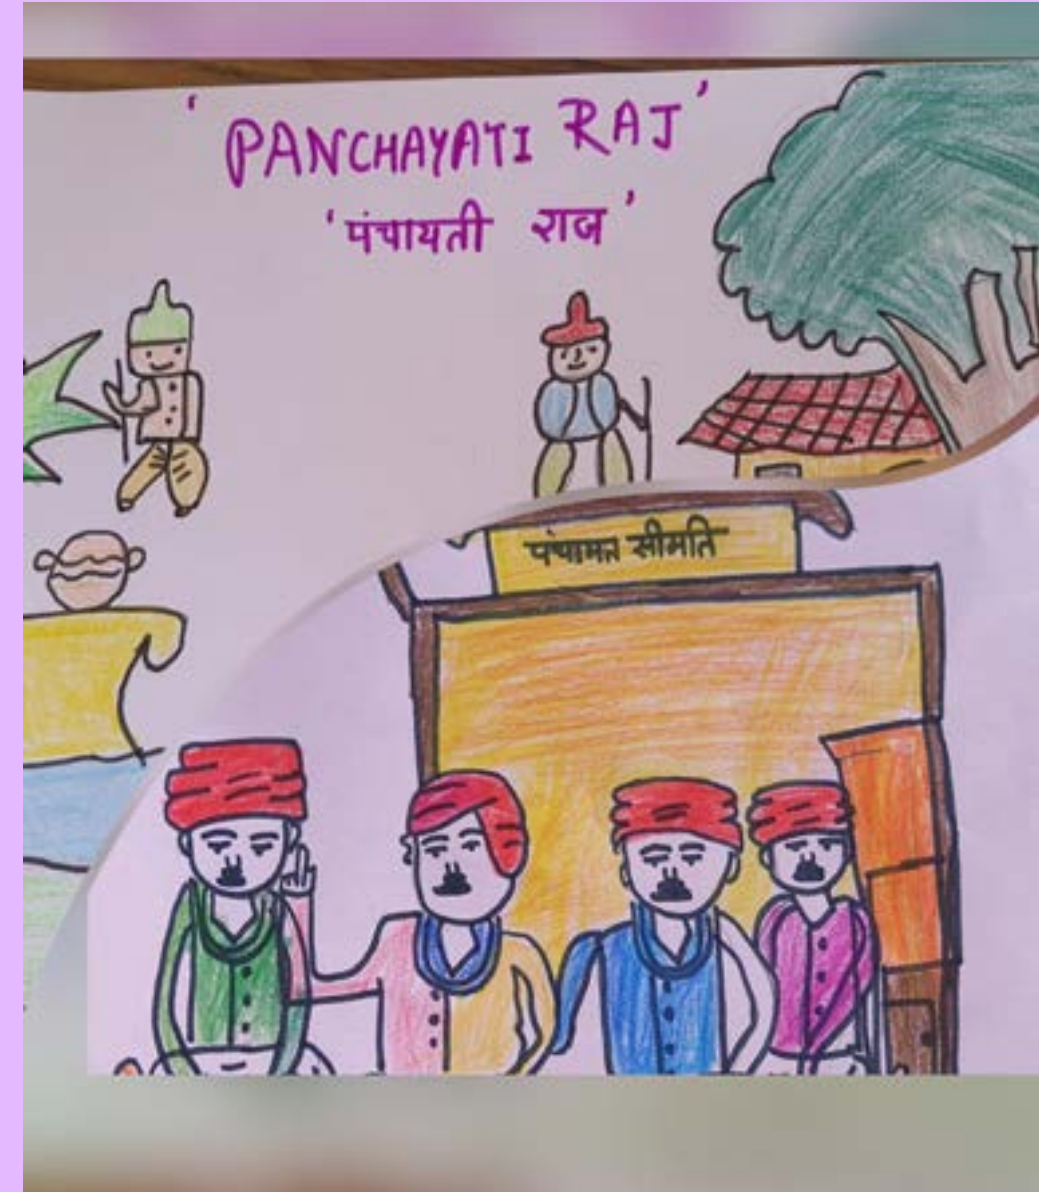 'PANCHAYATI RAJ'
'पंचायती राज'
पंचामत सीमति